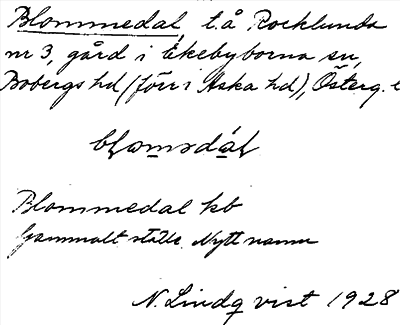 Blommedal, t.å Rocklunda
nr 3, gård i Ekebyborna sn,
Bobergs hd (förr i Aska hd), Österg. l
blomsdál
Blommedal kb
Gammalt ställe. Nytt namn
N. Lindqvist 1928